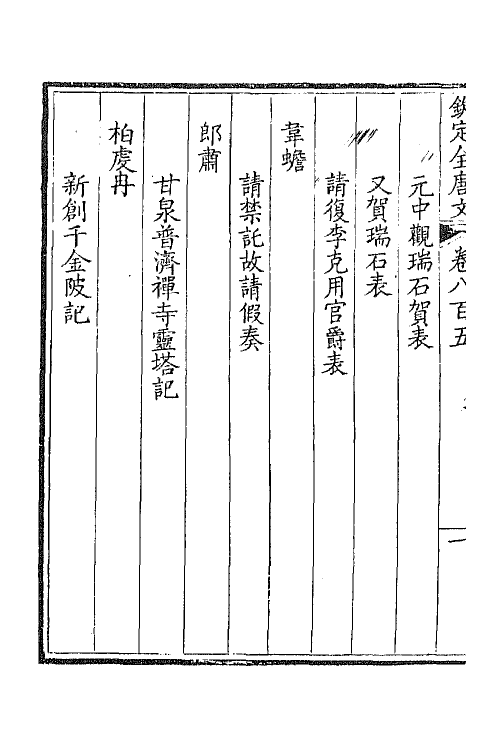 欽定全唐文 卷八百五 一
元中觀瑞石賀表
又賀瑞石表
請復李克用官爵表
韋蟾
請禁託故請假奏
郎肅
甘泉普濟禪寺靈塔記
柏虔冉
新創千金陂記